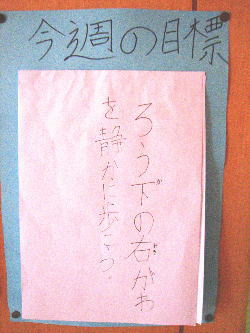 今週の目標
ろう下の右がわ
を静かに歩こう。